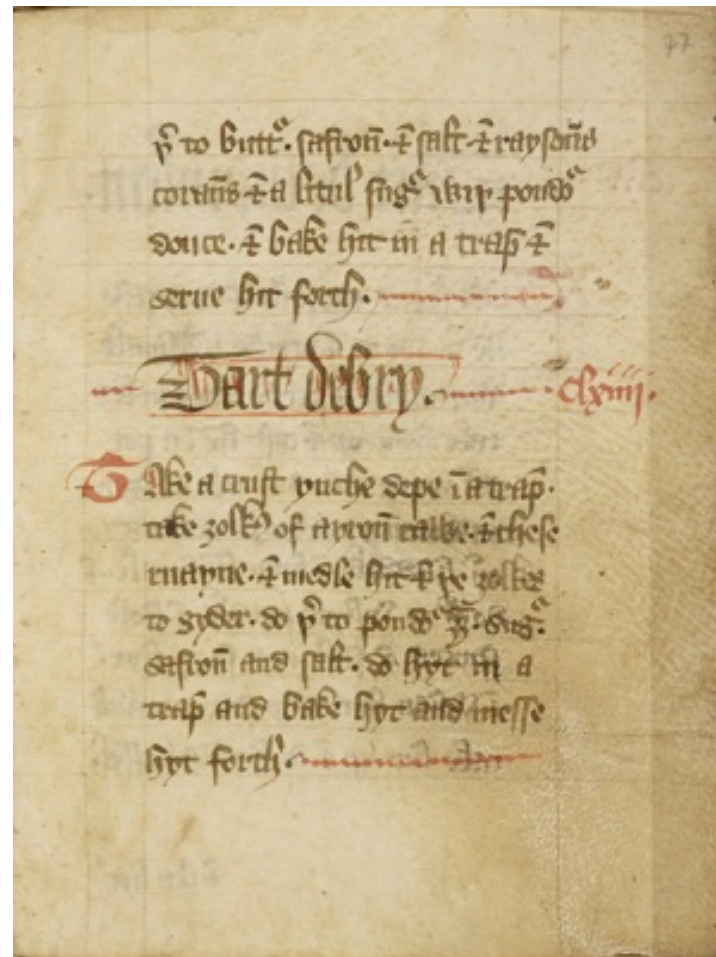 77
þͬ to buttᵃ. safroū. & salt & raysoūs
coraūs & a litul sugᵃ wiþ poudᵃ
douce. & bake hit in a trap &
serue hit forth.
Tart debry. clxiiij.
Take a crust ynche depe ī a trap.
take zolkꝭ of ayroū rawe. & chese
ruayne. & medle hit & þe zolkes
to gyder. do þͬ to poudᵃ gȳ. sugᵃ.
safroū and salt. do hyt in a
trap and bake hyt and messe
hyt forth.